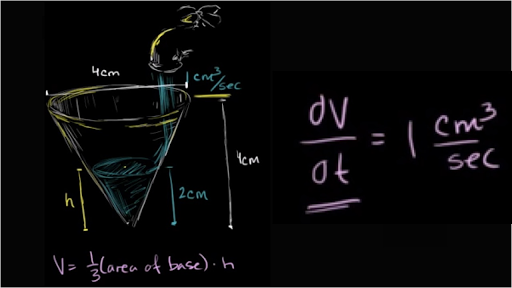 4cm
cm³/sec
4cm
h
2cm
V = 1/3 (area of base) · h
dV/dt = 1 cm³/sec